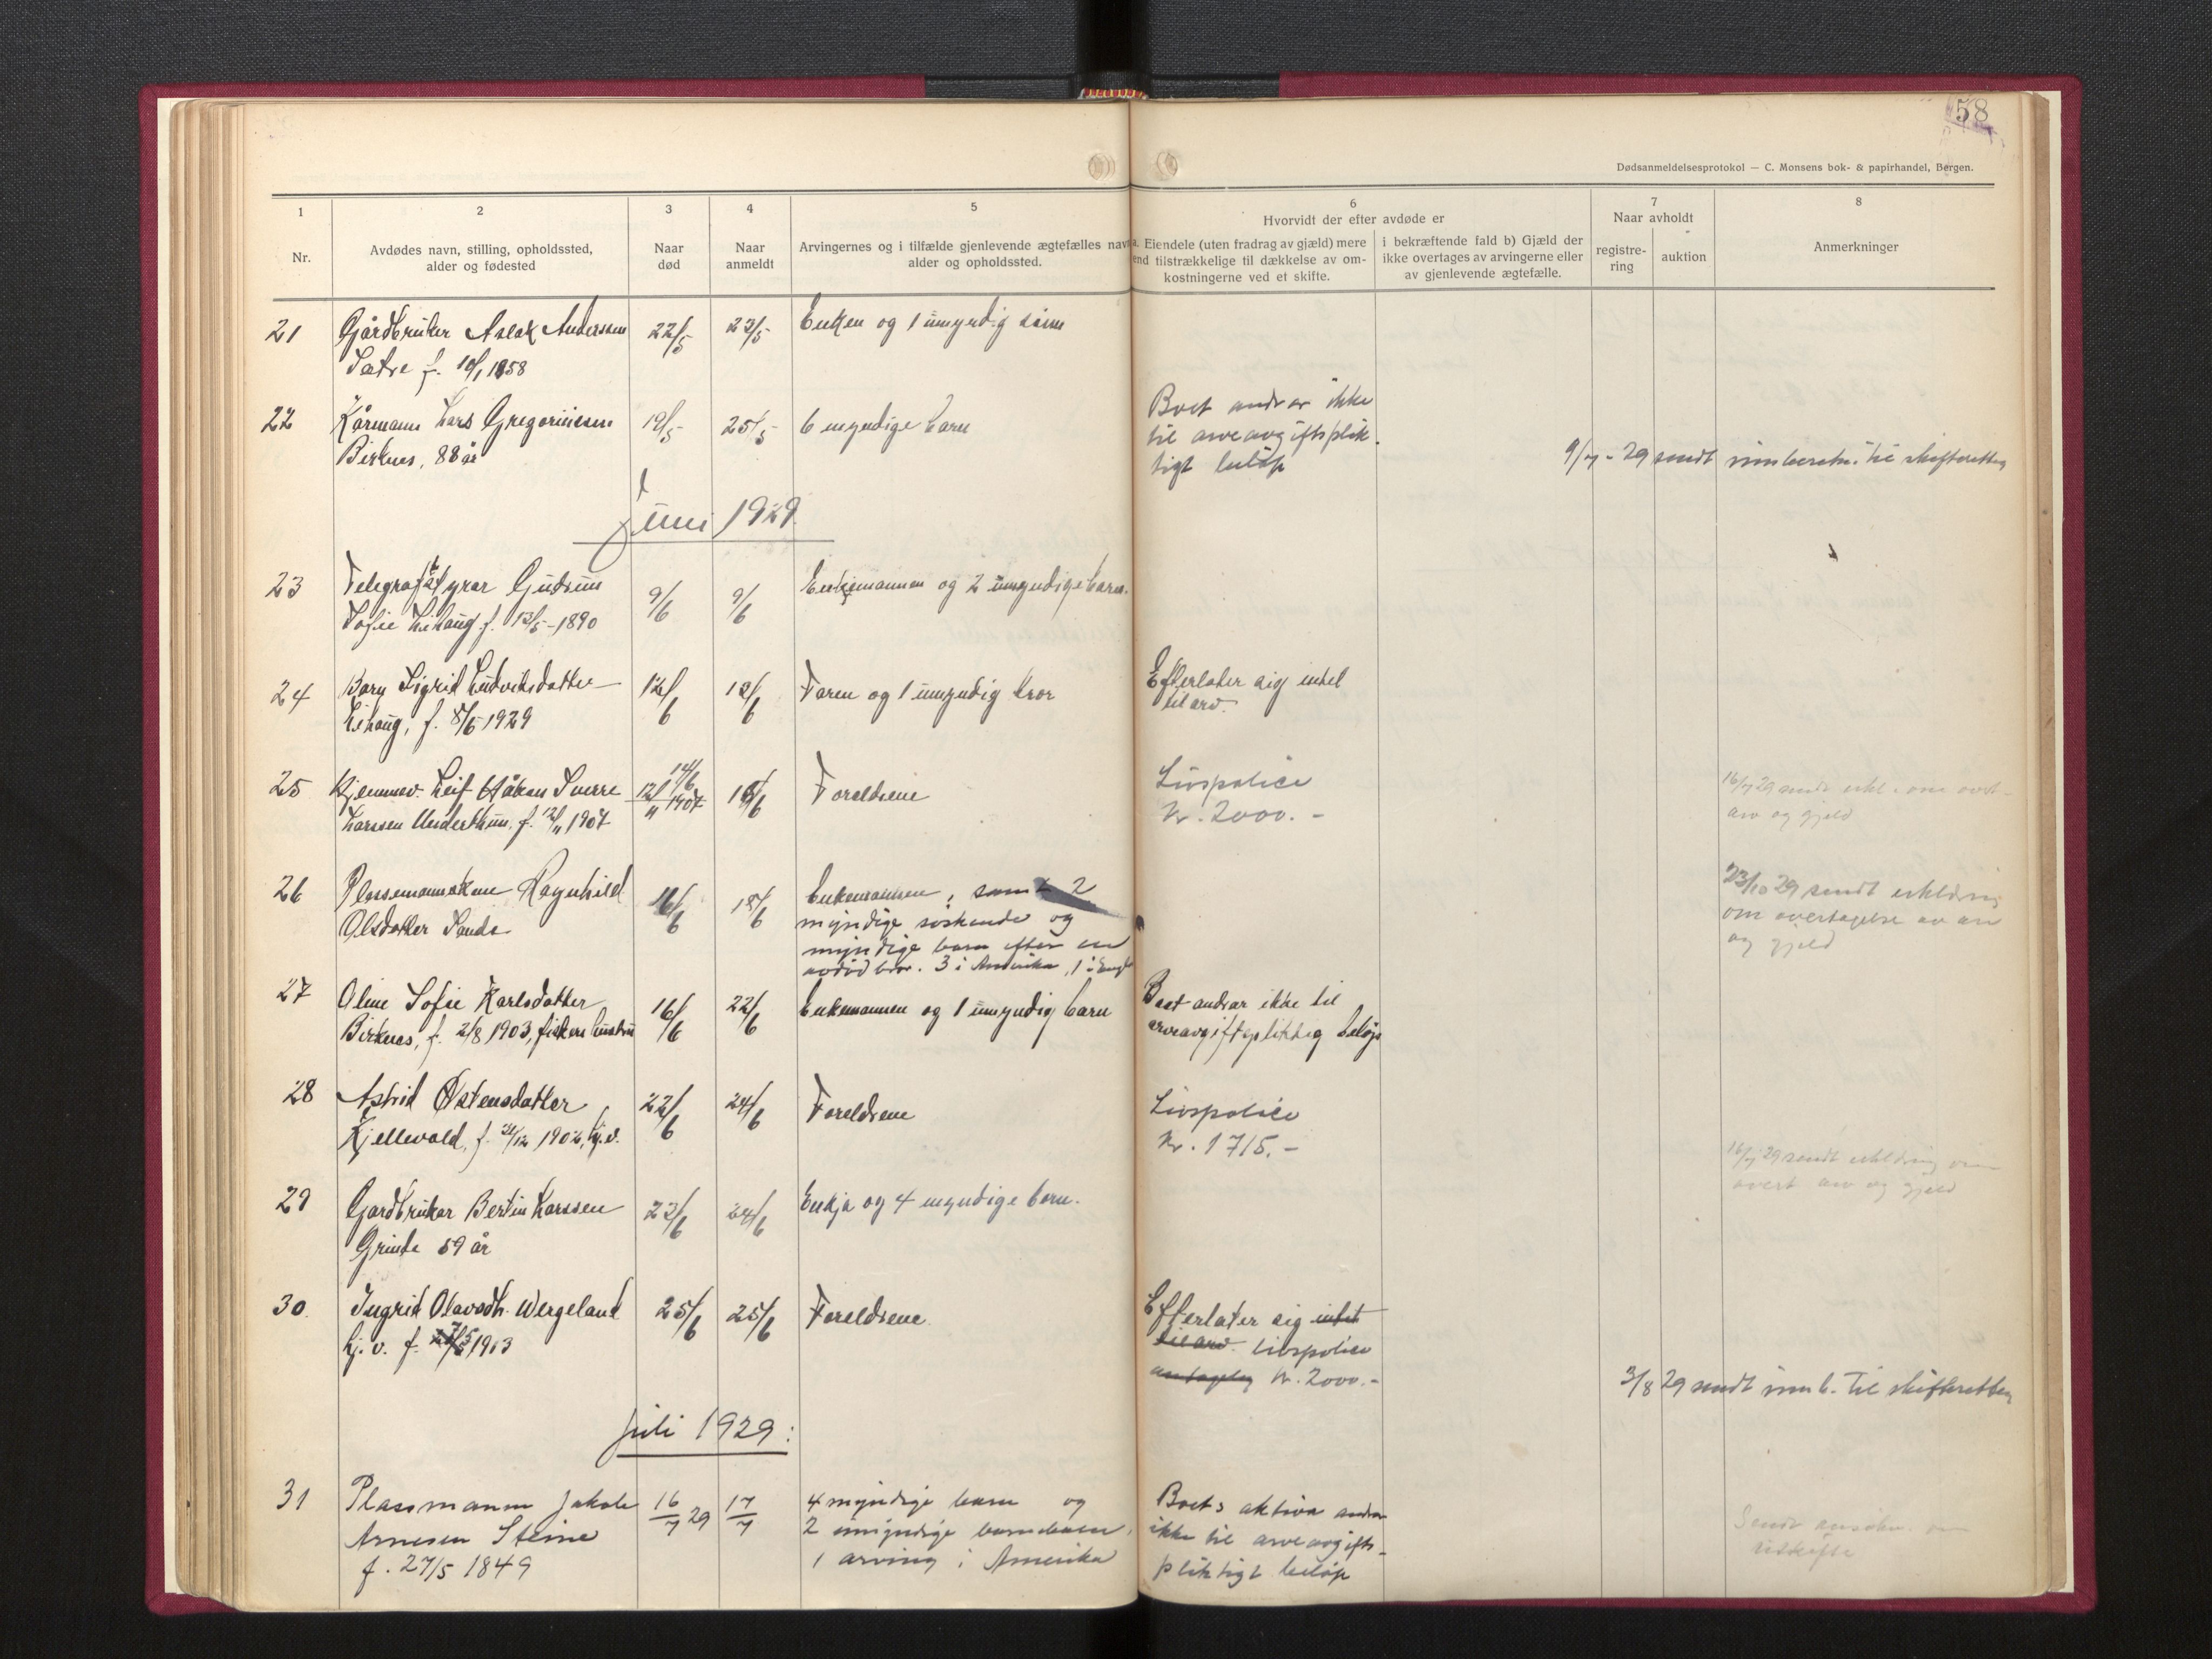 58
Dødsanmeldelsesprotokol — C. Monsens bok- & papirhandel, Bergen.
1
Nr.
2
Avdødes navn, stilling, opholdssted,
alder og fødested
3
Naar
død
4
Naar
anmeldt
5
Arvingernes og i tilfælde gjenlevende ægtefælles navn
alder og opholdssted.
6
Hvorvidt der efter avdøde er
a. Eiendele (uten fradrag av gjæld) mere
end tilstrækkelige til dækkelse av om-
kostningerne ved et skifte.
i bekræftende fald b) Gjæld der
ikke overtages av arvingerne eller
av gjenlevende ægtefælle.
7
Naar avholdt
registre-
ring
auktion
8
Anmerkninger
21 Gårdbruker Aslak Anderssen 22/5 23/5 Enken og 1 umyndig sønn
Sætre f. 10/1 1858
22 Kårmann Lars Gregoriussen 19/5 25/5 6 myndige barn
Birknes, 88 år
Boet andrar ikke
til arveavgiftsplik-
tigt beløp
9/7-29 sendt innberetn. til skifteretten
Juni 1929
23 Gudrun 9/6 9/6 Enkjemannen og 2 umyndige barn.
Sofie Lihaug f. 13/5-1890
24 Barn Sigrid Ludviksdatter 12/6 12/6 Faren og 1 umyndig bror
Lihaug, f. 8/6 1929
Efterlater sig intet
til arv.
25 Hjemmev. Leif Håkon Sverre 14/6 12/11 1907 18/6 Foreldrene
Larssen Underthun, f. 12/11 1907
Livspolice
Kr. 2000.-
16/7 29 sendt erkl. om overt.
arv og gjeld
26 Plassemannskone Ragnhild 16/6 18/6 Enkemannen, samt 2
Olsdatter Sande
myndige søskende og
myndige barn efter en
avdød bror. 3 i Amerika, 1 i
23/10 29 sendt erklæring
om overtagelse av arv
og gjeld
27 Oline Sofie Karlsdatter 16/6 22/6 Enkemannen og 1 umyndig barn
Birknes, f. 2/8 1903, fiskers hustru
Boet andrar ikke til
arveavgiftspliktig beløp
28 Astrid Østensdatter 22/6 24/6 Foreldrene
Kjellevold, f. 21/12 1902, hj.v.
Livspolice
Kr. 1715.-
16/7 29 sendt erklæring om
overt arv og gjeld
29 Gardbrukar Bertin Larssen 23/6 24/6 Enkja og 4 myndige born.
Grinde 59 år
30 Ingrid Olavsdtr. Wergeland 25/6 25/6 Foreldrene
hj. v. f. 1913
Efterlater sig intet
til arv. Livspolice
antagelig kr. 2000.-
3/8 29 sendt innb. til skifteretten
Juli 1929:
31 Plassmann Jakob 16/7 29 17/7 4 myndige barn og
Arnesen Steine
2 umyndige barnebarn,
f. 27/5 1849
1 arving i Amerika
Boets aktiva andrar
ikke til arveavgifts-
pliktigt beløp
Sendt